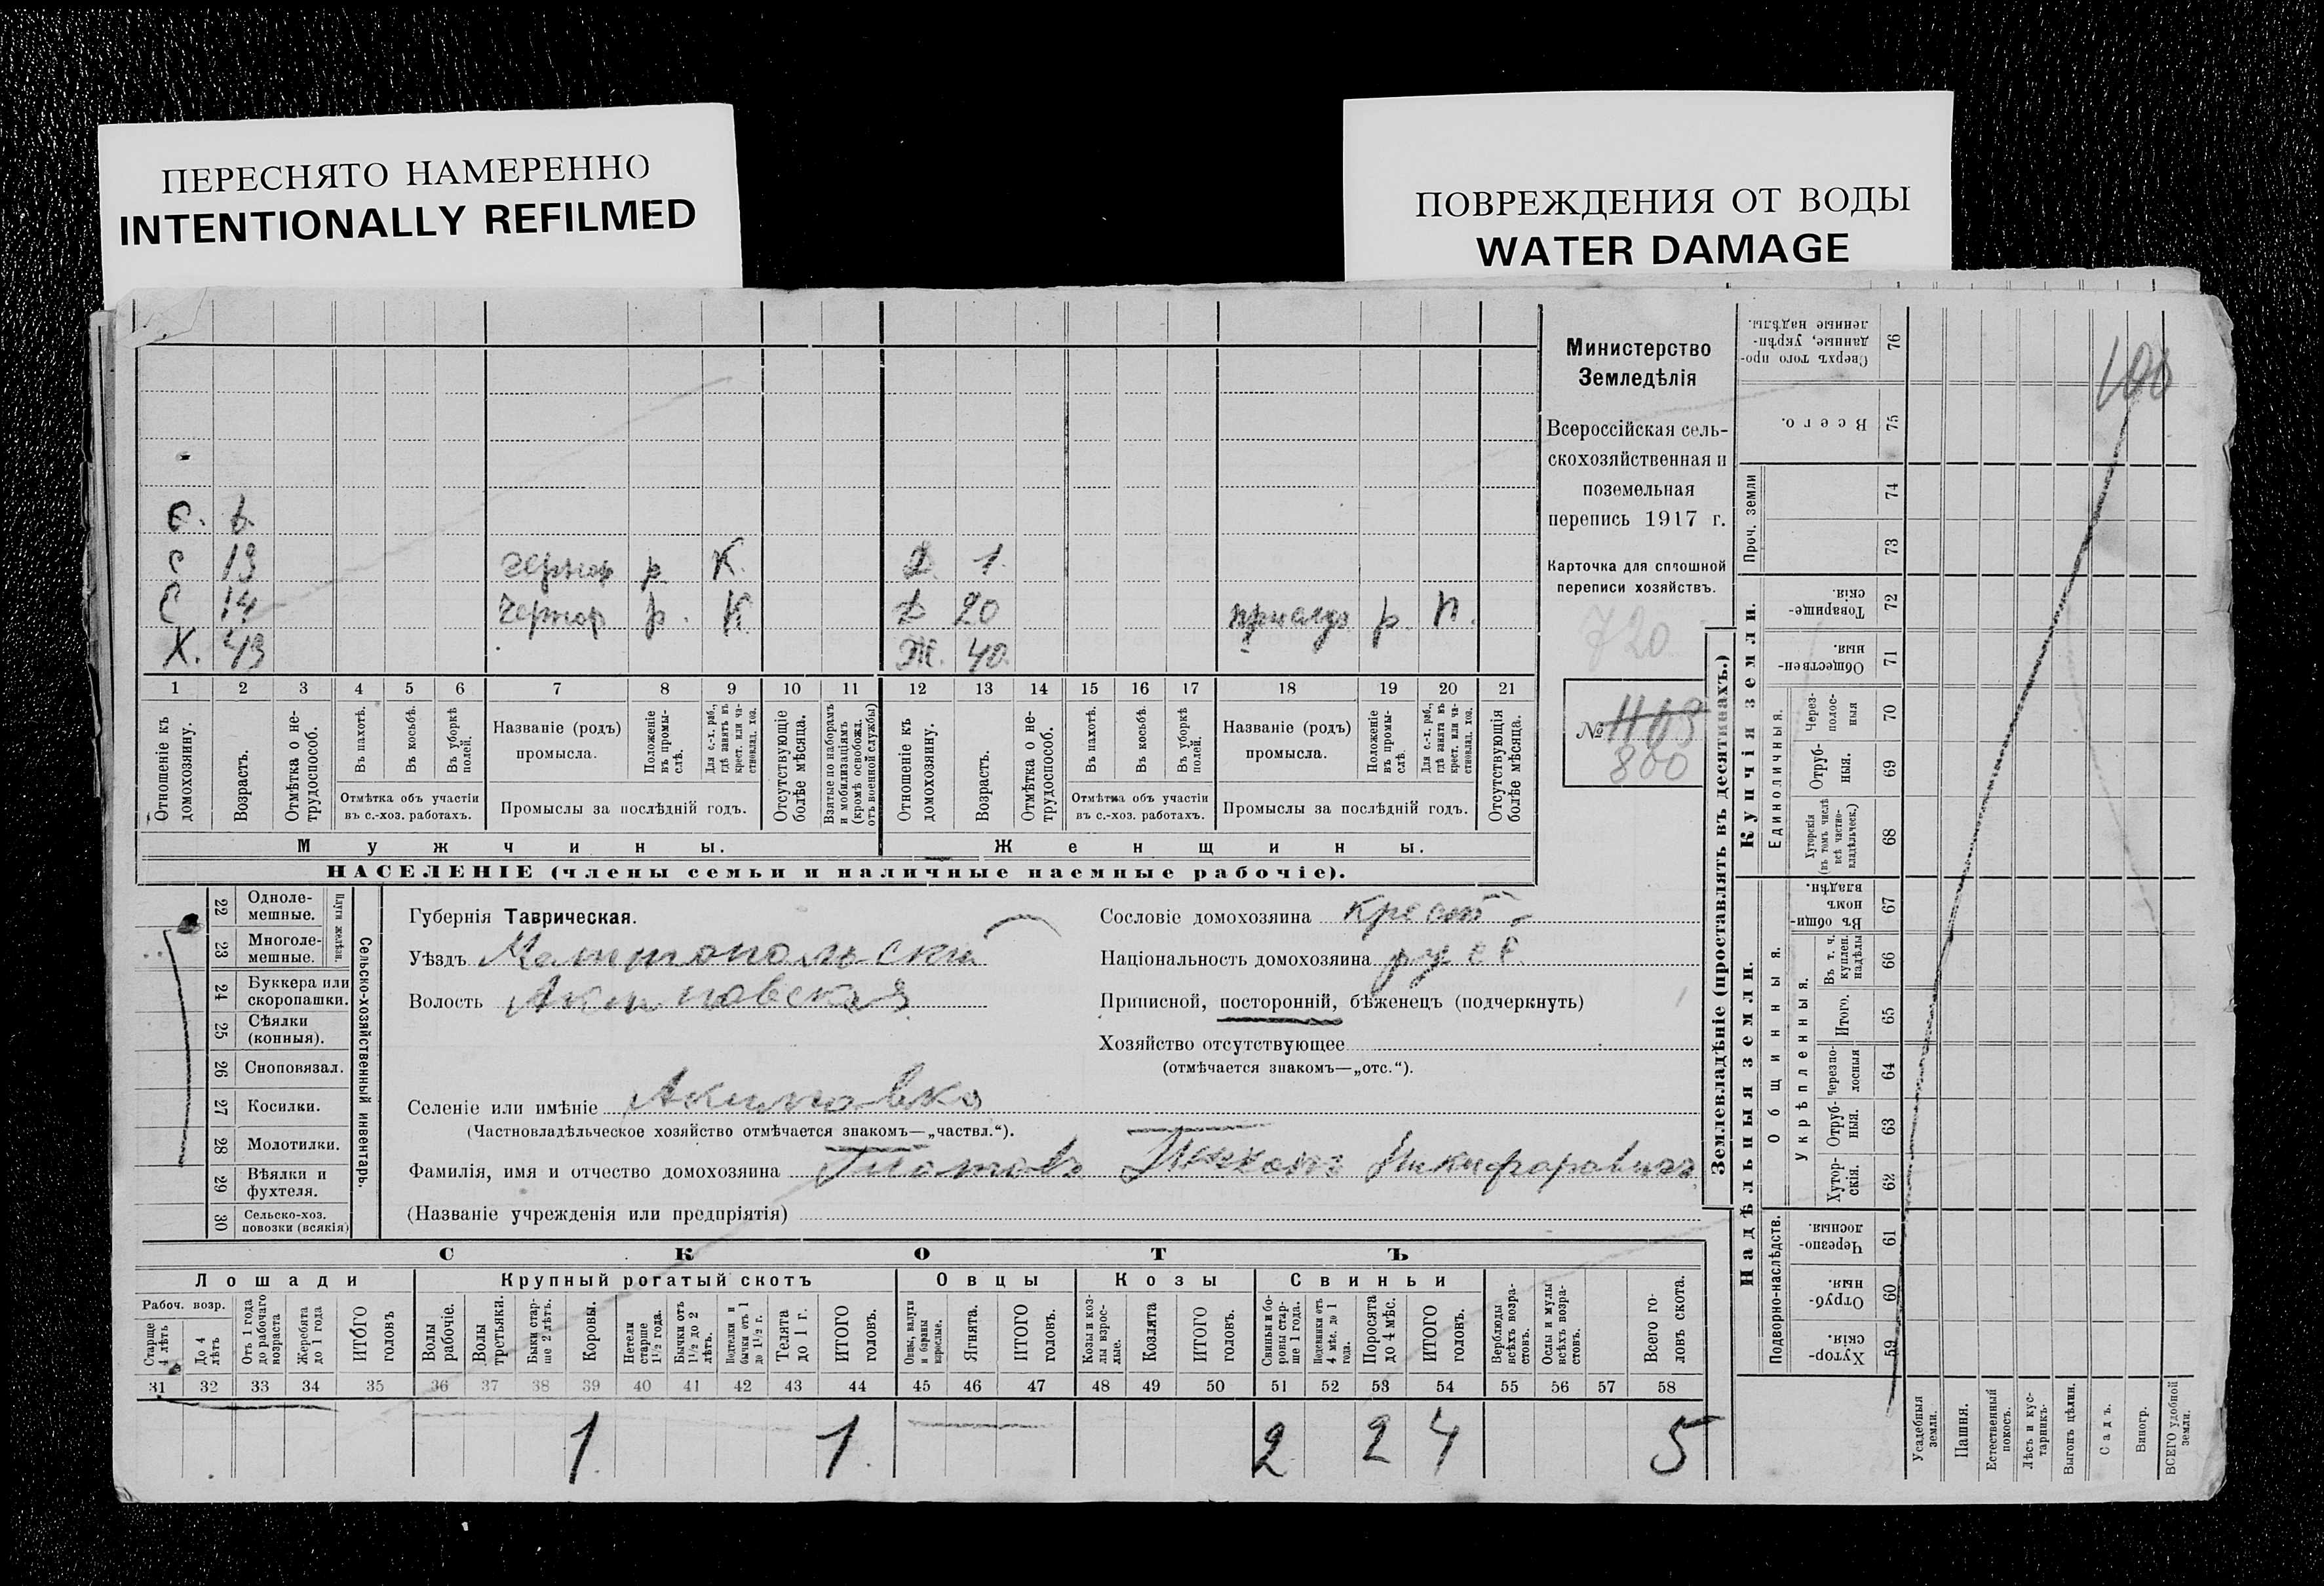 ПЕРЕСНЯТО НАМЕРЕННО
INTENTIONALLY REFILMED
ПОВРЕЖДЕНИЯ ОТ ВОДЫ
WATER DAMAGE
Министерство
Земледѣлія
Всероссійская сель-
скохозяйственная и
поземельная
перепись 1917 г.
Карточка для сплошной
переписи хозяйствъ.
720
№ 1103
800
100
С. 6.
С 13 р К. Д. 1.
С 14 р. К. Д 20 р П.
Х. 43 Ж. 40.
1 2 3 4 5 6 7 8 9 10 11 12 13 14 15 16 17 18 19 20 21
Отношеніе къ домохозяину.
Возрастъ.
Отмѣтка о не-трудоспособ.
Въ пахотѣ.
Въ косьбѣ.
Въ уборкѣ полей.
Отмѣтка объ участіи
въ с.-хоз. работахъ.
Названіе (родъ)
промысла.
Положеніе въ промы-слѣ.
Для с.-х. раб., гдѣ занятъ въ крест. или ча-стновлад. хоз.
Промыслы за послѣдній годъ.
Отсутствующіе болѣе мѣсяца.
Взятые по наборамъ и мобилизаціямъ (кромѣ освобожд. отъ военной службы)
Отношеніе къ домохозяину.
Возрастъ.
Отмѣтка о не-трудоспособ.
Въ пахотѣ.
Въ косьбѣ.
Въ уборкѣ полей.
Отмѣтка объ участіи
въ с.-хоз. работахъ.
Названіе (родъ)
промысла.
Положеніе въ промы-слѣ.
Для с.-х. раб., гдѣ занята въ крест. или ча-стновлад. хоз.
Промыслы за послѣдній годъ.
Отсутствующія болѣе мѣсяца.
Мужчины.
Женщины.
НАСЕЛЕНІЕ (члены семьи и наличные наемные рабочіе).
Сельско-хозяйственный инвентарь.
Плуги желѣзн.
22 Одноле-мешные.
23 Многоле-мешные.
24 Буккера или скоропашки.
25 Сѣялки (конныя).
26 Сноповязал.
27 Косилки.
28 Молотилки.
29 Вѣялки и фухтеля.
30 Сельско-хоз. повозки (всякія)
Губернія Таврическая.
Уѣздъ Мелитопольскій
Волость Акимовская
Сословіе домохозяина Крест
Національность домохозяина русс
Приписной, посторонній, бѣженецъ (подчеркнуть)
Хозяйство отсутствующее
(отмѣчается знакомъ—„отс.“).
Селеніе или имѣніе Акимовка
(Частновладѣльческое хозяйство отмѣчается знакомъ—„частвл.“).
Фамилія, имя и отчество домохозяина Никифоровичъ
(Названіе учрежденія или предпріятія)
СКОТЪ
Лошади
Крупный рогатый скотъ
Овцы
Козы
Свиньи
Рабоч. возр.
Старше 4 лѣтъ
До 4 лѣтъ
Отъ 1 года до рабочаго возраста
Жеребята до 1 года
ИТОГО головъ
Волы рабочіе.
Волы третьяки.
Быки стар-ше 2 лѣтъ.
Коровы.
Нетели старше 1½ года.
Бычки отъ 1½ до 2 лѣтъ.
Подтелки и бычки отъ 1 до 1½ г.
Телята до 1 г.
ИТОГО головъ.
Овцы, валухи и бараны взрослые.
Ягнята.
ИТОГО головъ.
Козы и коз-лы взрос-лые.
Козлята
ИТОГО головъ.
Свиньи и бо-ровы стар-ше 1 года.
Подсвинки отъ 4 мѣс. до 1 года.
Поросята до 4 мѣс.
ИТОГО головъ.
Верблюды всѣхъ возра-стовъ.
Ослы и мулы всѣхъ возра-стовъ.
Всего го-ловъ скота.
31 32 33 34 35 36 37 38 39 40 41 42 43 44 45 46 47 48 49 50 51 52 53 54 55 56 57 58
1 1. 2 2 4 5
Землевладѣніе (проставлять въ десятинахъ.)
Купчія земли.
Надѣльныя земли.
Сверхъ того про-данные, укрѣп-ленные надѣлы. 76
Всего. 75
Проч. земли
74
73
Товарище-скія. 72
Обществен-ныя. 71
Единоличныя.
Через-полос-ныя 70
Отруб-ныя. 69
Хуторскія (въ томъ числѣ всѣ частно-владѣльческ.) 68
Общинныя.
Въ общи-номъ владѣн. 67
Укрѣпленныя.
Въ т. ч. куплен. надѣлы 66
Итого. 65
Черезпо-лосныя 64
Отруб-ныя. 63
Хутор-скія. 62
Подворно-наслѣдств.
Черезпо-лосныя. 61
Отруб-ныя. 60
Хутор-скія. 59
Усадебныя земли.
Пашня.
Естественный покосъ.
Лѣсъ и кус-тарникъ.
Выгонъ цѣлин.
Садъ.
Виногр.
ВСЕГО удобной земли.